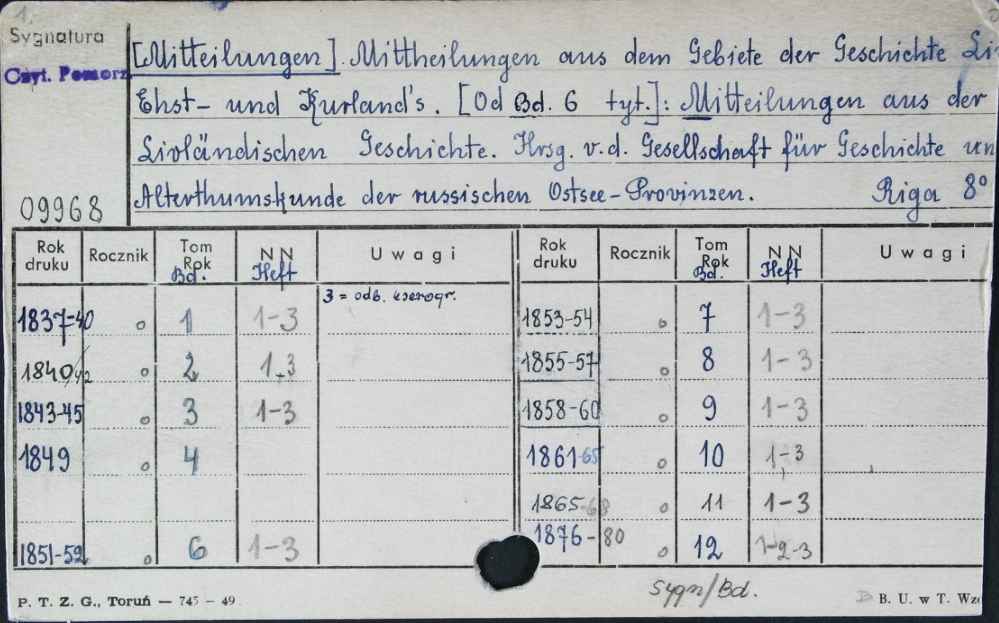 1.
Sygnatura
Czyt. Pomorz
[Mitteilungen]. Mittheilungen aus dem Gebiete der Geschichte Li
Ehst- und Kurland's. [Od Bd. 6 tyt.]: Mitteilungen aus der
Livländischen Geschichte. Hrsg. v. d. Gesellschaft für Geschichte un
Alterthumskunde der russischen Ostsee-Provinzen. Riga 8°
09968
Rok druku Rocznik Tom Rok Bd. NN Heft Uwagi Rok druku Rocznik Tom Rok Bd. NN Heft Uwagi
1837-40 o 1 1-3 3 = odb. kserogr. 1853-54 o 7 1-3
1840/42 o 2 1,3 1855-57 o 8 1-3
1843-45 o 3 1-3 1858-60 o 9 1-3
1849 o 4 1861-65 o 10 1,3
1865-68 o 11 1-3
1851-52 o 6 1-3 1876-80 o 12 1-2-3
Sygn/Bd.
P. T. Z. G., Toruń — 745 - 49 B. U. w T. Wzó